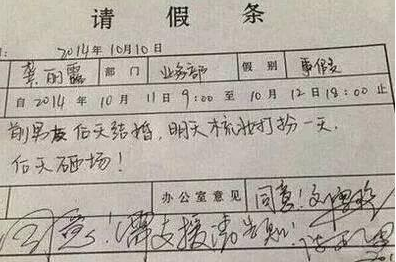 请假条
2014年10月10日
龚丽露 部门 业务部 假别 事假
自2014年10月11日9:00至10月12日18:00止
前男友后天结婚,明天梳妆打扮一天.
后天砸场!
办公室意见 同意!
同意!需支援请告知!